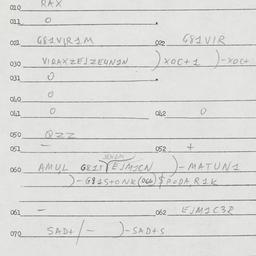 010 RAX
011 0
021 G81V1R1M 022 G81VIR
030 VIRAXZEJZEUN1N )XOC+1 )-XOC+
031 0
040 0
041 0 042 0
050 QZZ
051 - 052 +
060 AMUL G81S EJM1CN )-MATUN1
)-G81S+ONK(064)$PODA,R1K
061 - 062 EJM1C3R
070 SAD+/- )-SAD+S